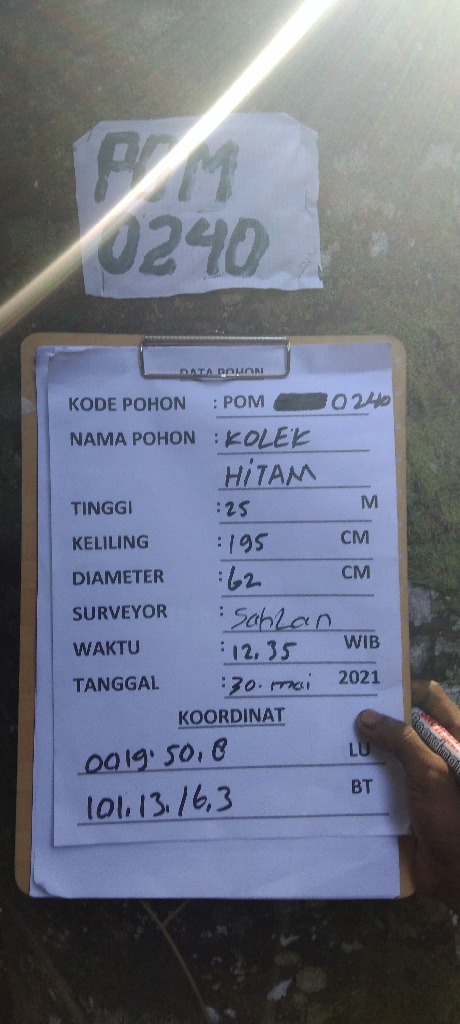 POM
0240
DATA POHON
KODE POHON : POM 0240
NAMA POHON : KOLEK
HITAM
TINGGI : 25 M
KELILING : 195 CM
DIAMETER : 62 CM
SURVEYOR : Sahlan
WAKTU : 12.35 WIB
TANGGAL : 30. mai 2021
KOORDINAT
0019. 50, 8 LU
101. 13. 16,3 BT